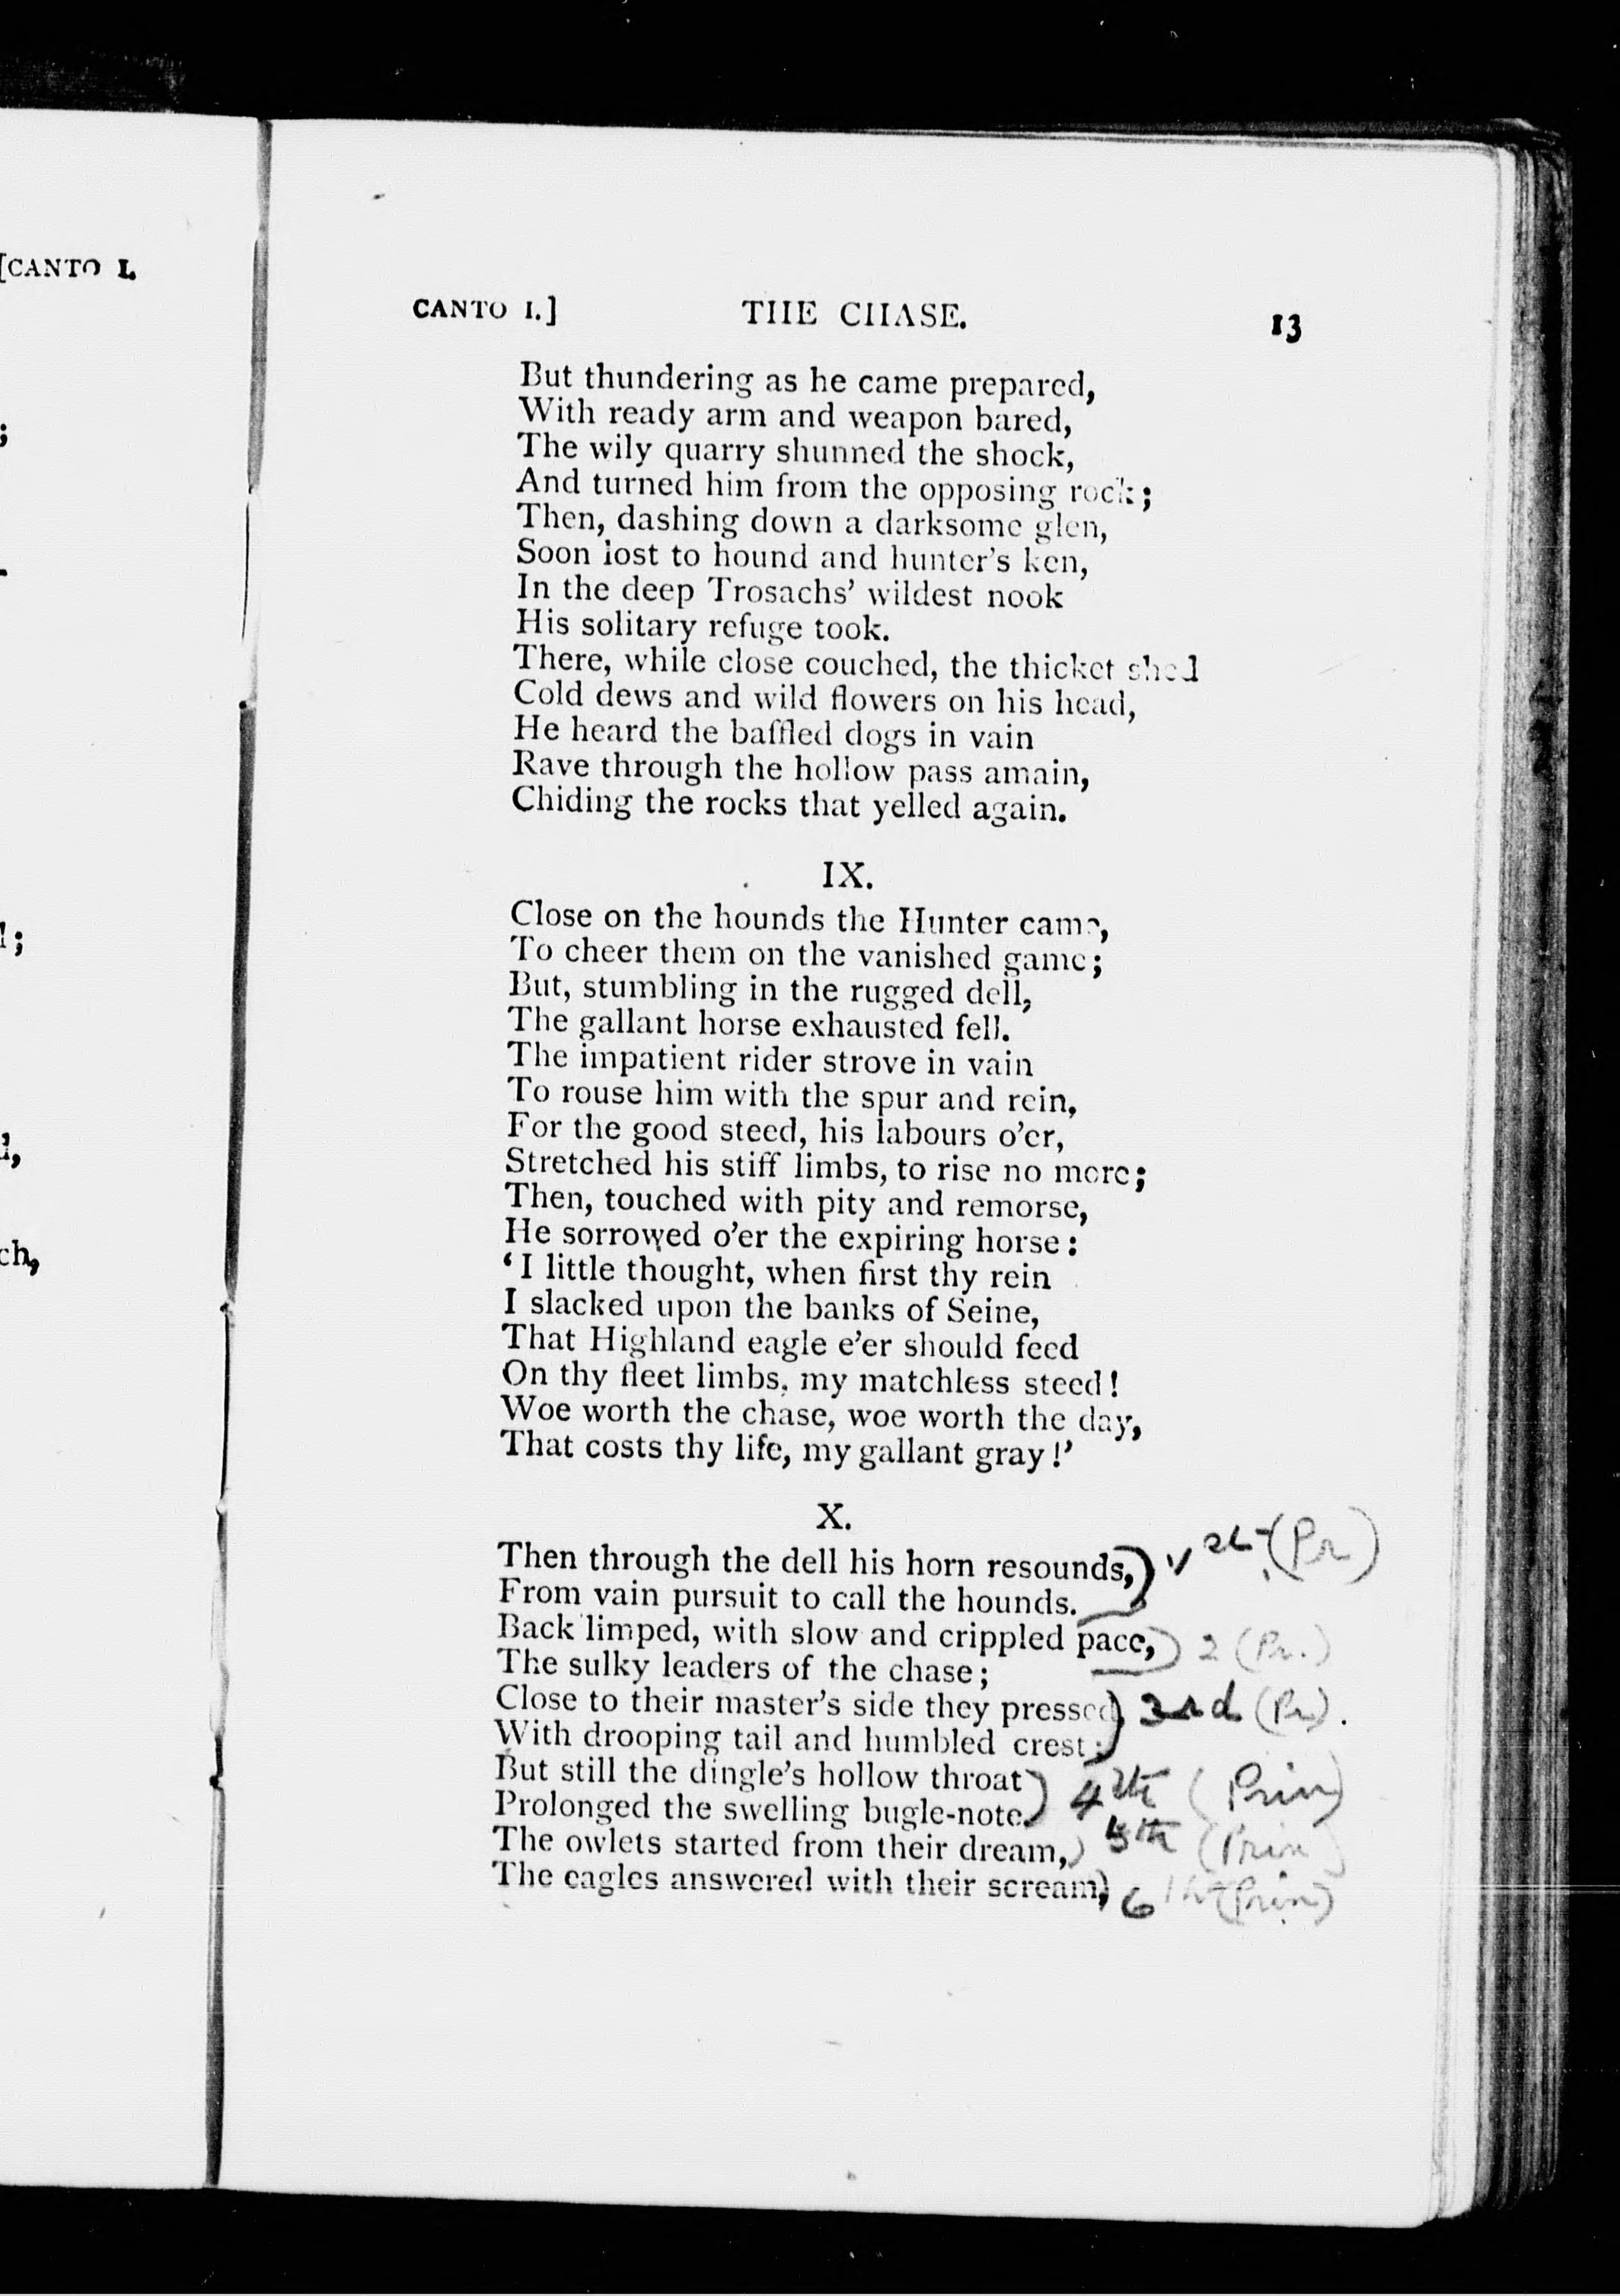 [CANTO I.
CANTO I.] THE CHASE. 13
But thundering as he came prepared,
With ready arm and weapon bared,
The wily quarry shunned the shock,
And turned him from the opposing rock;
Then, dashing down a darksome glen,
Soon lost to hound and hunter's ken,
In the deep Trosachs' wildest nook
His solitary refuge took.
There, while close couched, the thicket shed
Cold dews and wild flowers on his head,
He heard the baffled dogs in vain
Rave through the hollow pass amain,
Chiding the rocks that yelled again.
IX.
Close on the hounds the Hunter came,
To cheer them on the vanished game;
But, stumbling in the rugged dell,
The gallant horse exhausted fell.
The impatient rider strove in vain
To rouse him with the spur and rein,
For the good steed, his labours o'er,
Stretched his stiff limbs, to rise no more;
Then, touched with pity and remorse,
He sorrowed o'er the expiring horse:
'I little thought, when first thy rein
I slacked upon the banks of Seine,
That Highland eagle e'er should feed
On thy fleet limbs, my matchless steed!
Woe worth the chase, woe worth the day,
That costs thy life, my gallant gray!'
X.
Then through the dell his horn resounds,) (Pr)
From vain pursuit to call the hounds.
Back limped, with slow and crippled pace,) 2 (Pr.)
The sulky leaders of the chase;
Close to their master's side they pressed,) 3rd (Pr).
With drooping tail and humbled crest;
But still the dingle's hollow throat) 4th (Prin)
Prolonged the swelling bugle-note.
The owlets started from their dream,) 5th (Prin)
The eagles answered with their scream,) 6th (Prin)